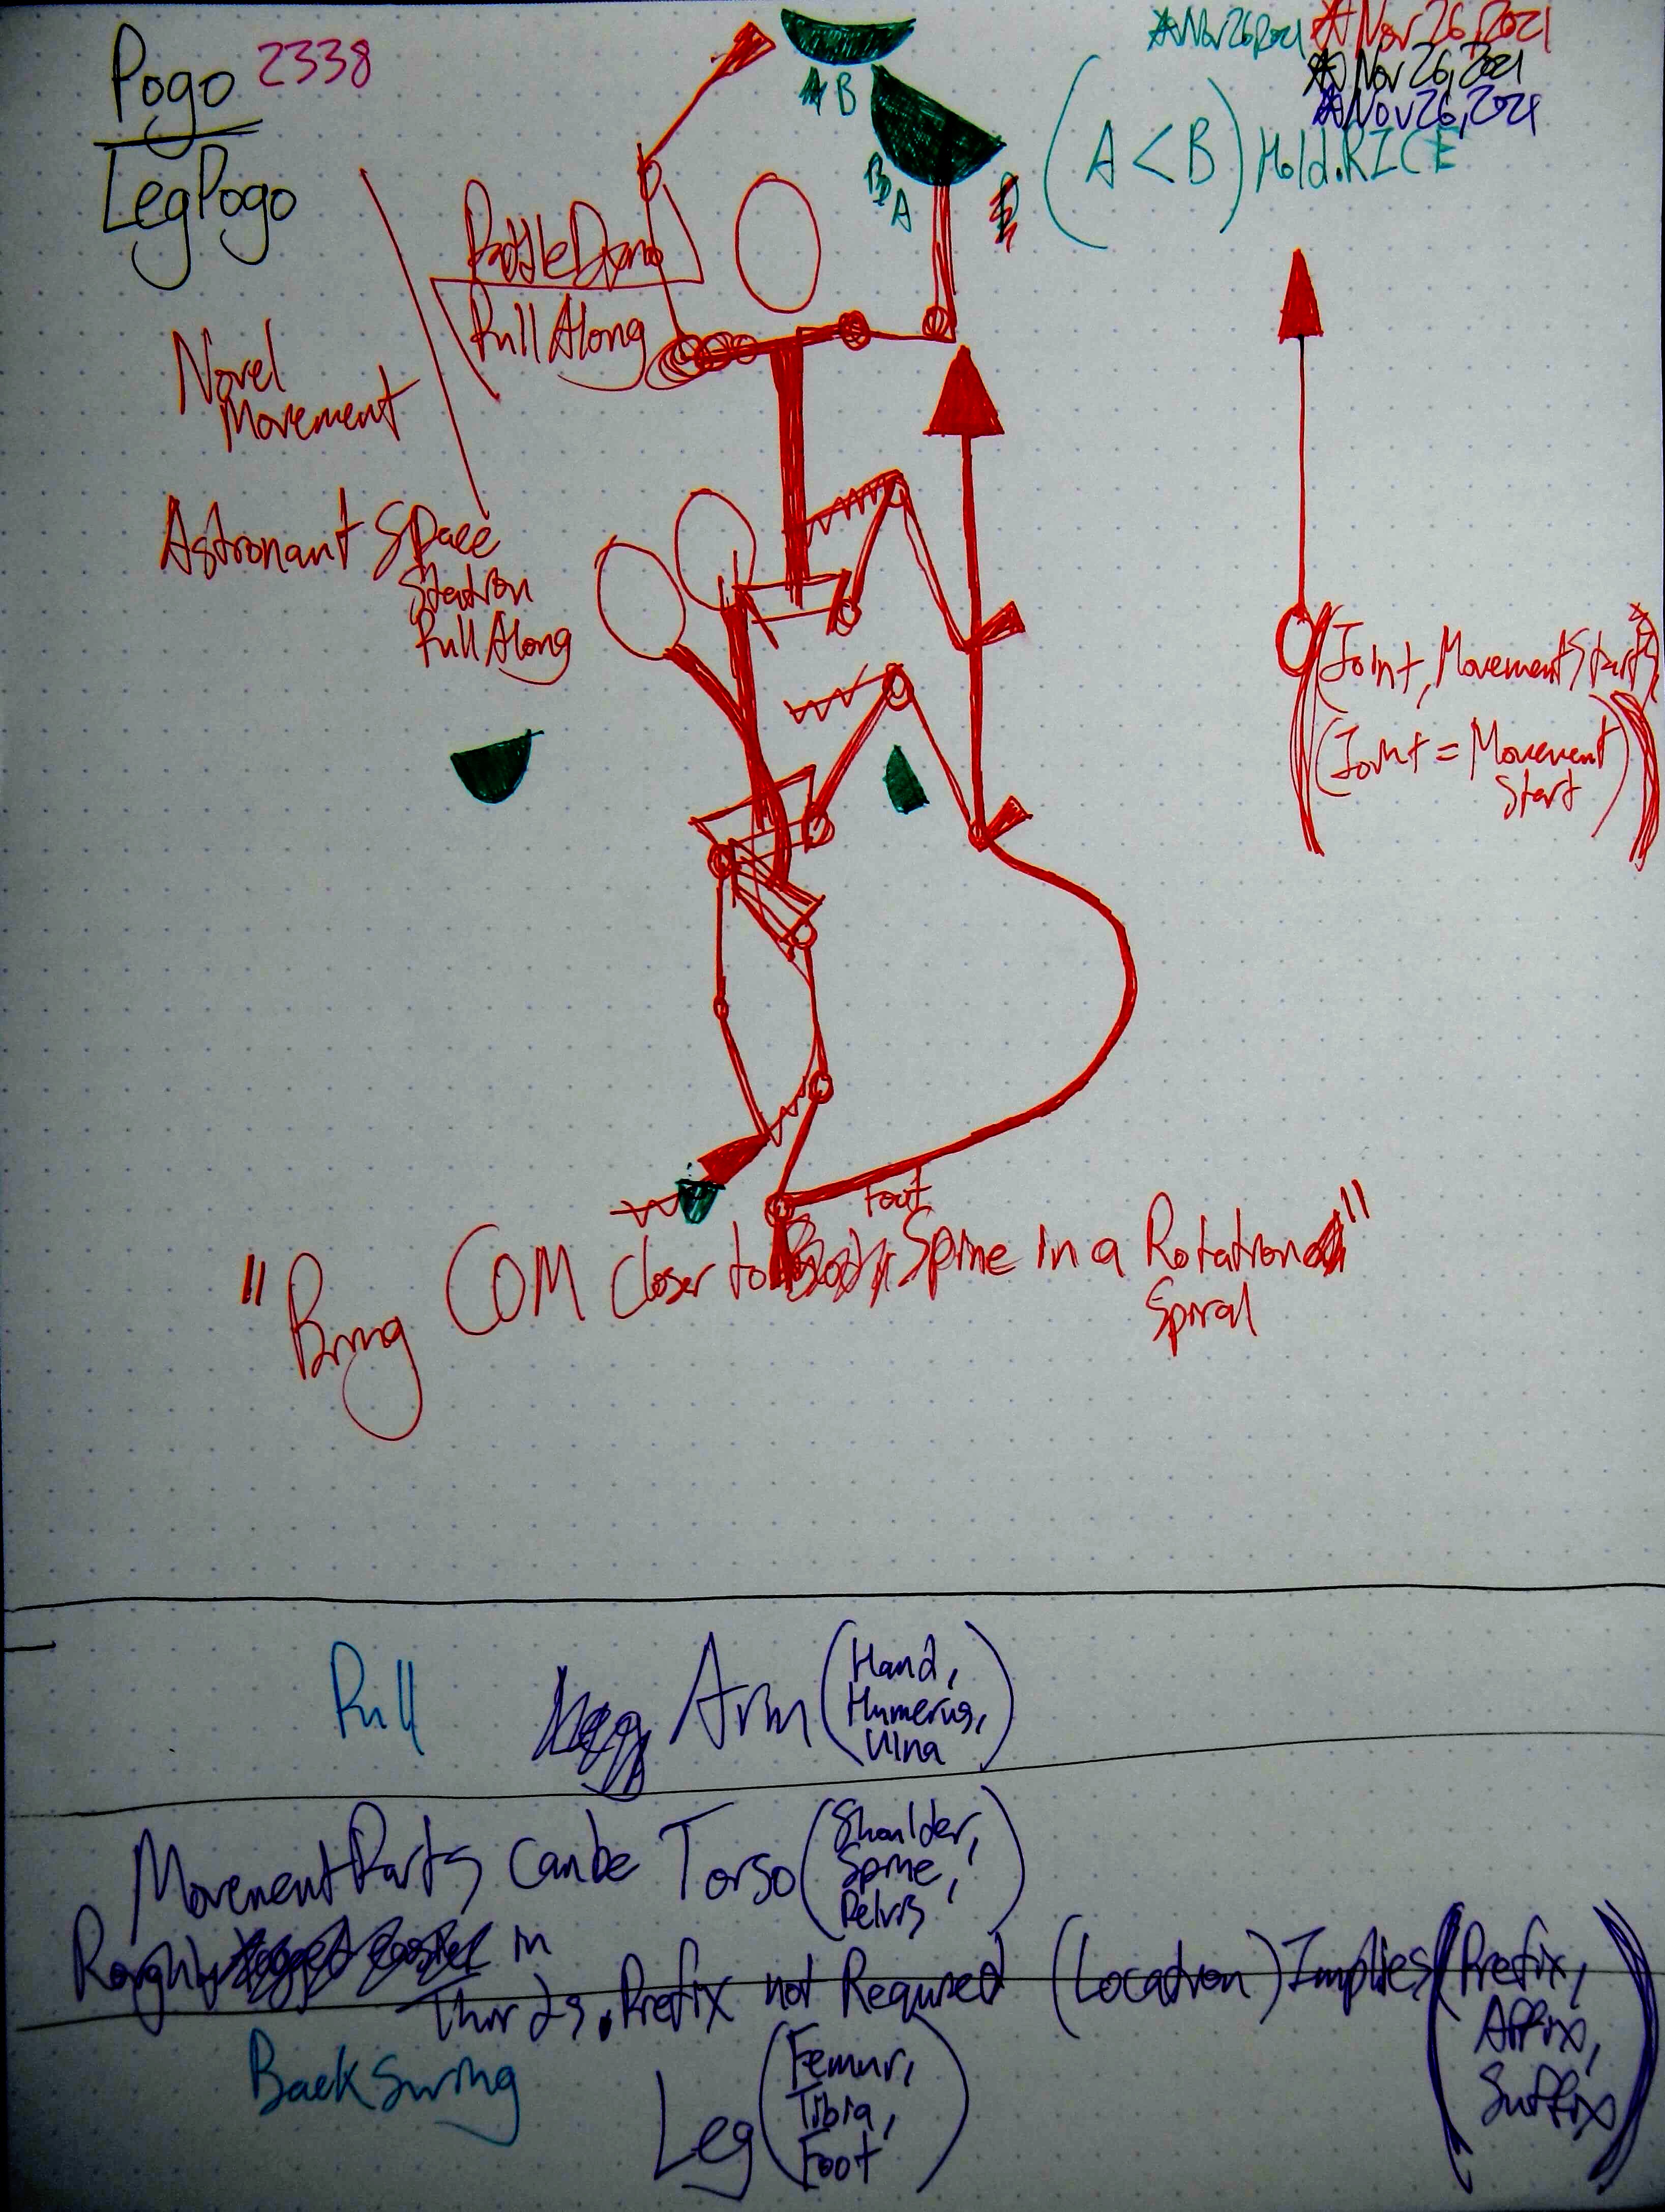 Pogo 2338
LegPogo
Nov 26, 2021
Nov 26, 2021
Nov 26, 2021
Nov 26, 2021
A B
B
A
(A < B) Hold.RICE
Pull Along
Novel
Movement
Astronaut Space
Station
Pull Along
(Joint, Movement Start)
(Joint = Movement
Start)
Foot
"Bring COM closer to Spine in a Rotation"
Spiral
Pull Arm (Hand,
Humerus,
Ulna)
MovementParts can be Torso (Shoulder,
Spine,
Pelvis)
Roughly in
Thirds. Prefix not Required (Location) Implies (Prefix,
Affix,
Suffix)
BackSwing
Leg (Femur,
Tibia,
Foot)